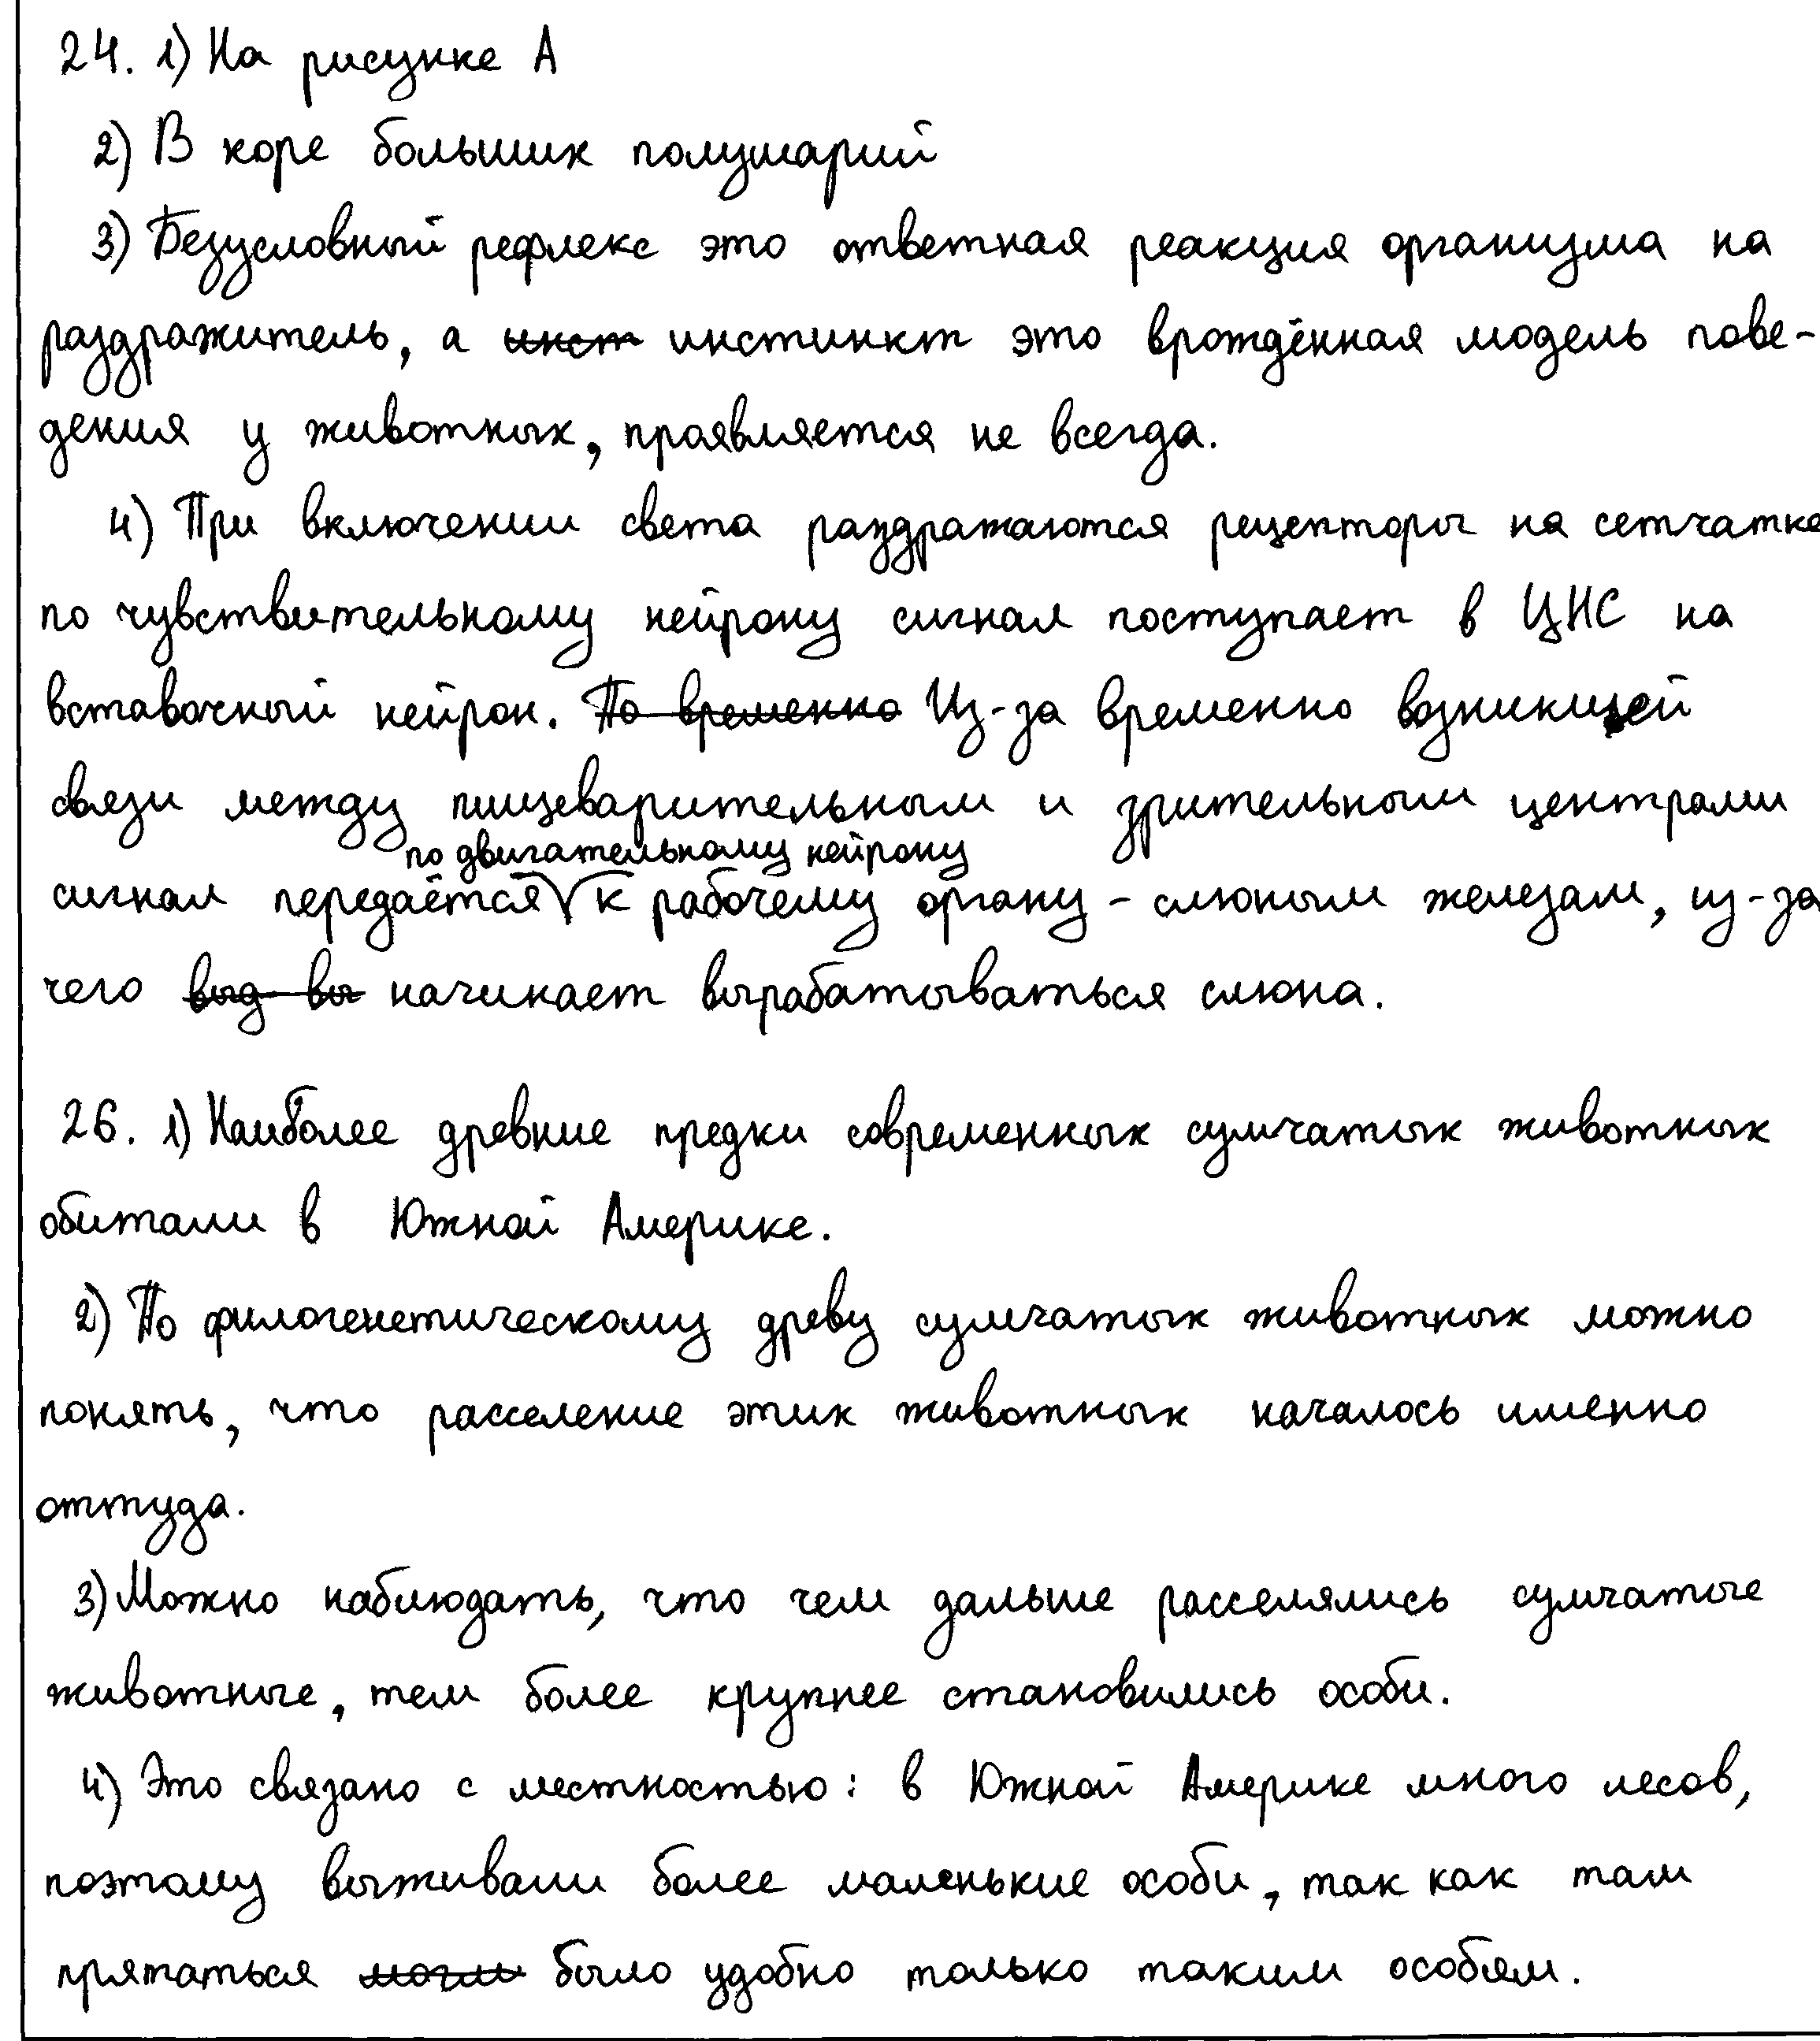 24. 1) На рисунке А
2) В коре больших полушарий
3) Безусловный рефлекс это ответная реакция организма на
раздражитель, а инст инстинкт это врождённая модель пове-
дения у животных, проявляется не всегда.
4) При включении света раздражаются рецепторы на сетчатке
по чувствительному нейрону сигнал поступает в ЦНС на
вставочный нейрон. По временно Из-за временно возникшей
связи между пищеварительным и зрительным центрами
по двигательному нейрону
сигнал передаётся к рабочему органу - слюным железам, из-за
чего выд вы начинает вырабатываться слюна.
26. 1) Наиболее древние предки современных сумчатых животных
обитали в Южной Америке.
2) По филогенетическому древу сумчатых животных можно
понять, что расселение этих животных началось именно
оттуда.
3) Можно наблюдать, что чем дальше расселялись сумчатые
животные, тем более крупнее становились особи.
4) Это связано с местностью: в Южной Америке много лесов,
поэтому выживали более маленькие особи, так как там
прятаться могли было удобно только таким особям.